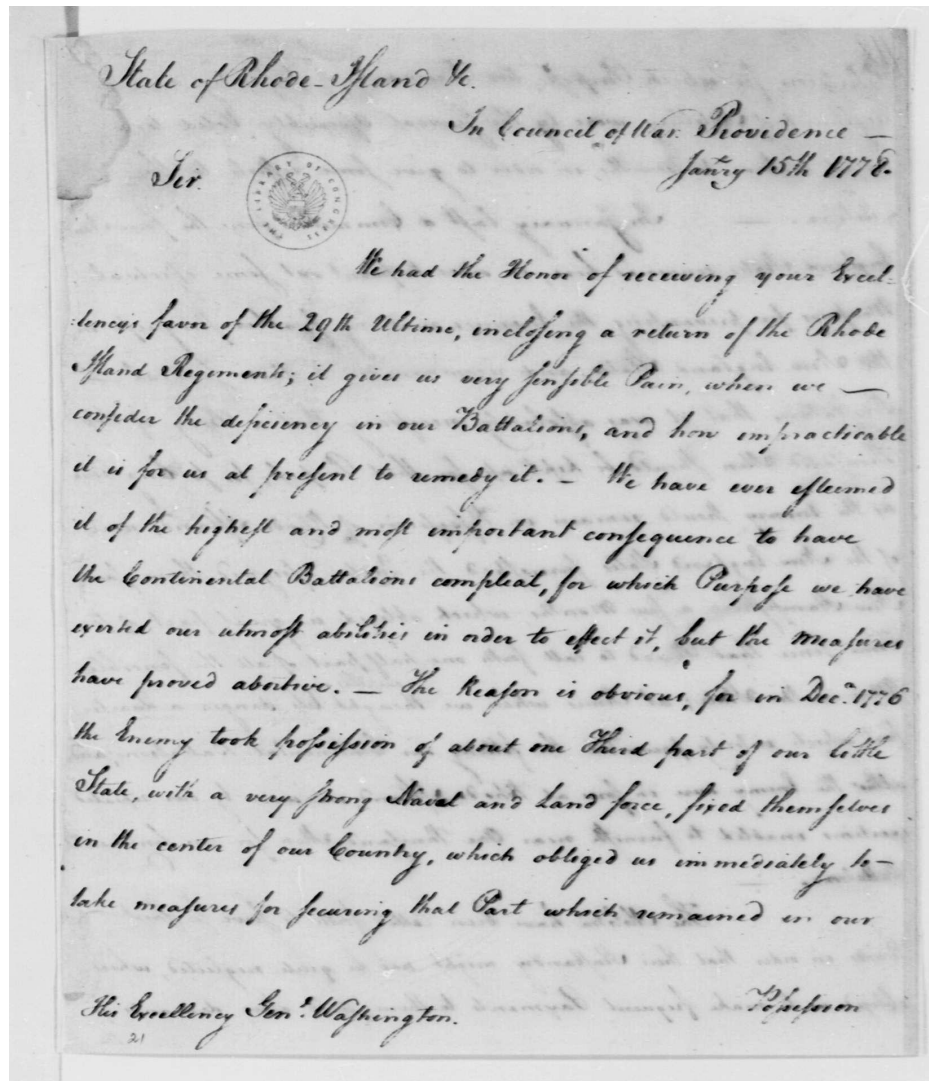 State of Rhode-Island &c.
In Council of War. Providence —
Janry 15th 1778.
Sir.
THE LIBRARY OF CONGRESS
We had the Honor of receiving your Excel-
:lencys favor of the 29th Ultimo, inclosing a return of the Rhode
Island Regiments; it gives us very sensible Pain, when we —
consider the deficiency in our Battalions, and how impracticable
it is for us at present to remedy it. – We have ever esteemed
it of the highest and most important consequence to have
the Continental Battalions compleat, for which Purpose we have
exerted our utmost abilities in order to effect it, but the measures
have proved abortive. — The Reason is obvious, for in Decr. 1776
the Enemy took possession of about one Third part of our little
State, with a very strong Naval and Land force, fixed themselves
in the center of our Country, which obliged us immediately to –
take measures for securing that Part which remained in our
Possession
His Excellency Genl. Washington.
21